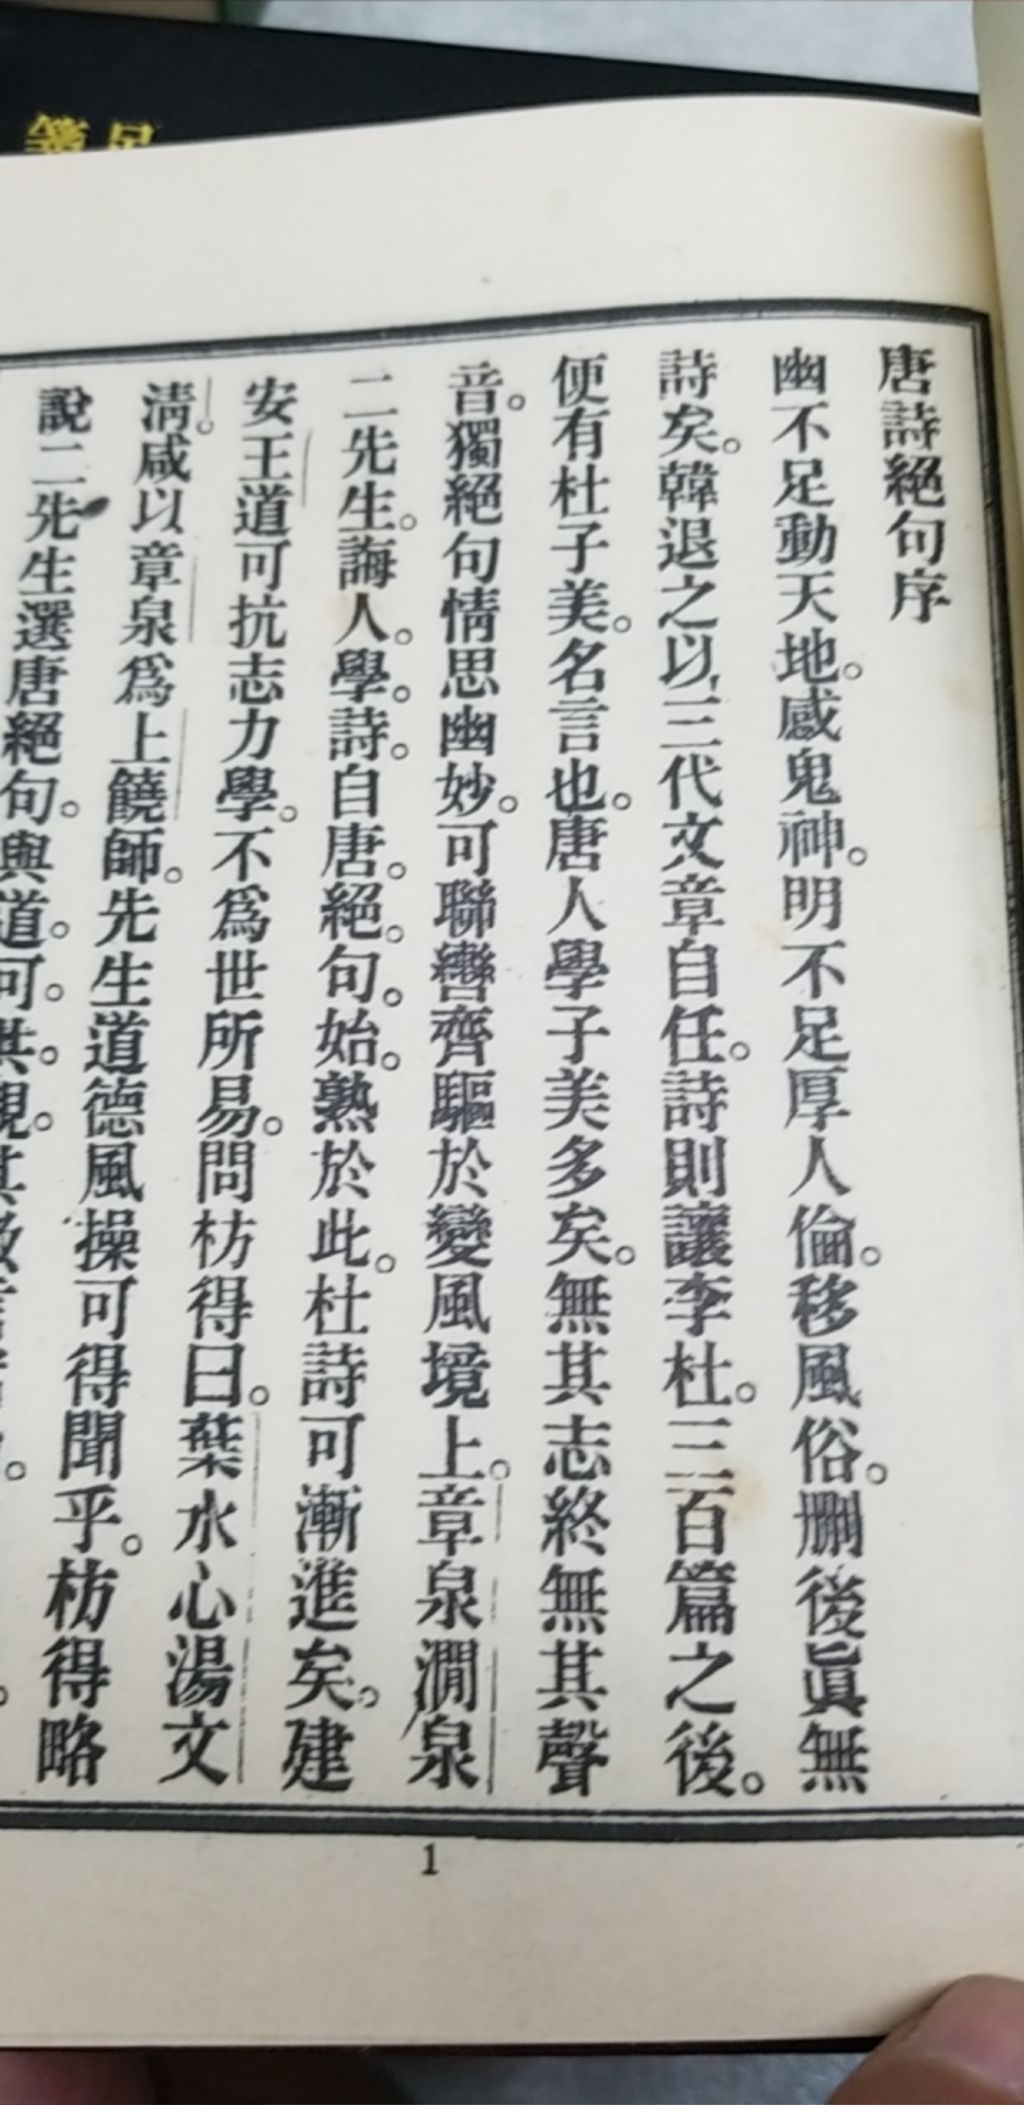 唐詩絕句序
幽不足動天地。感鬼神。明不足厚人倫。移風俗。刪後眞無
詩矣。韓退之以三代文章自任。詩則讓李杜。三百篇之後。
便有杜子美。名言也。唐人學子美多矣。無其志終無其聲
音。獨絕句情思幽妙。可聯轡齊驅於變風境上。章泉澗泉
二先生。誨人。學。詩。自唐。絕。句。始。熟於此。杜詩可漸進矣。建
安王道可抗志力學。不爲世所易。問枋得曰。葉水心湯文
清。咸以章泉爲上饒師。先生道德風操可得聞乎。枋得略
說二先生選唐絕句。與道。可。共。觀。其